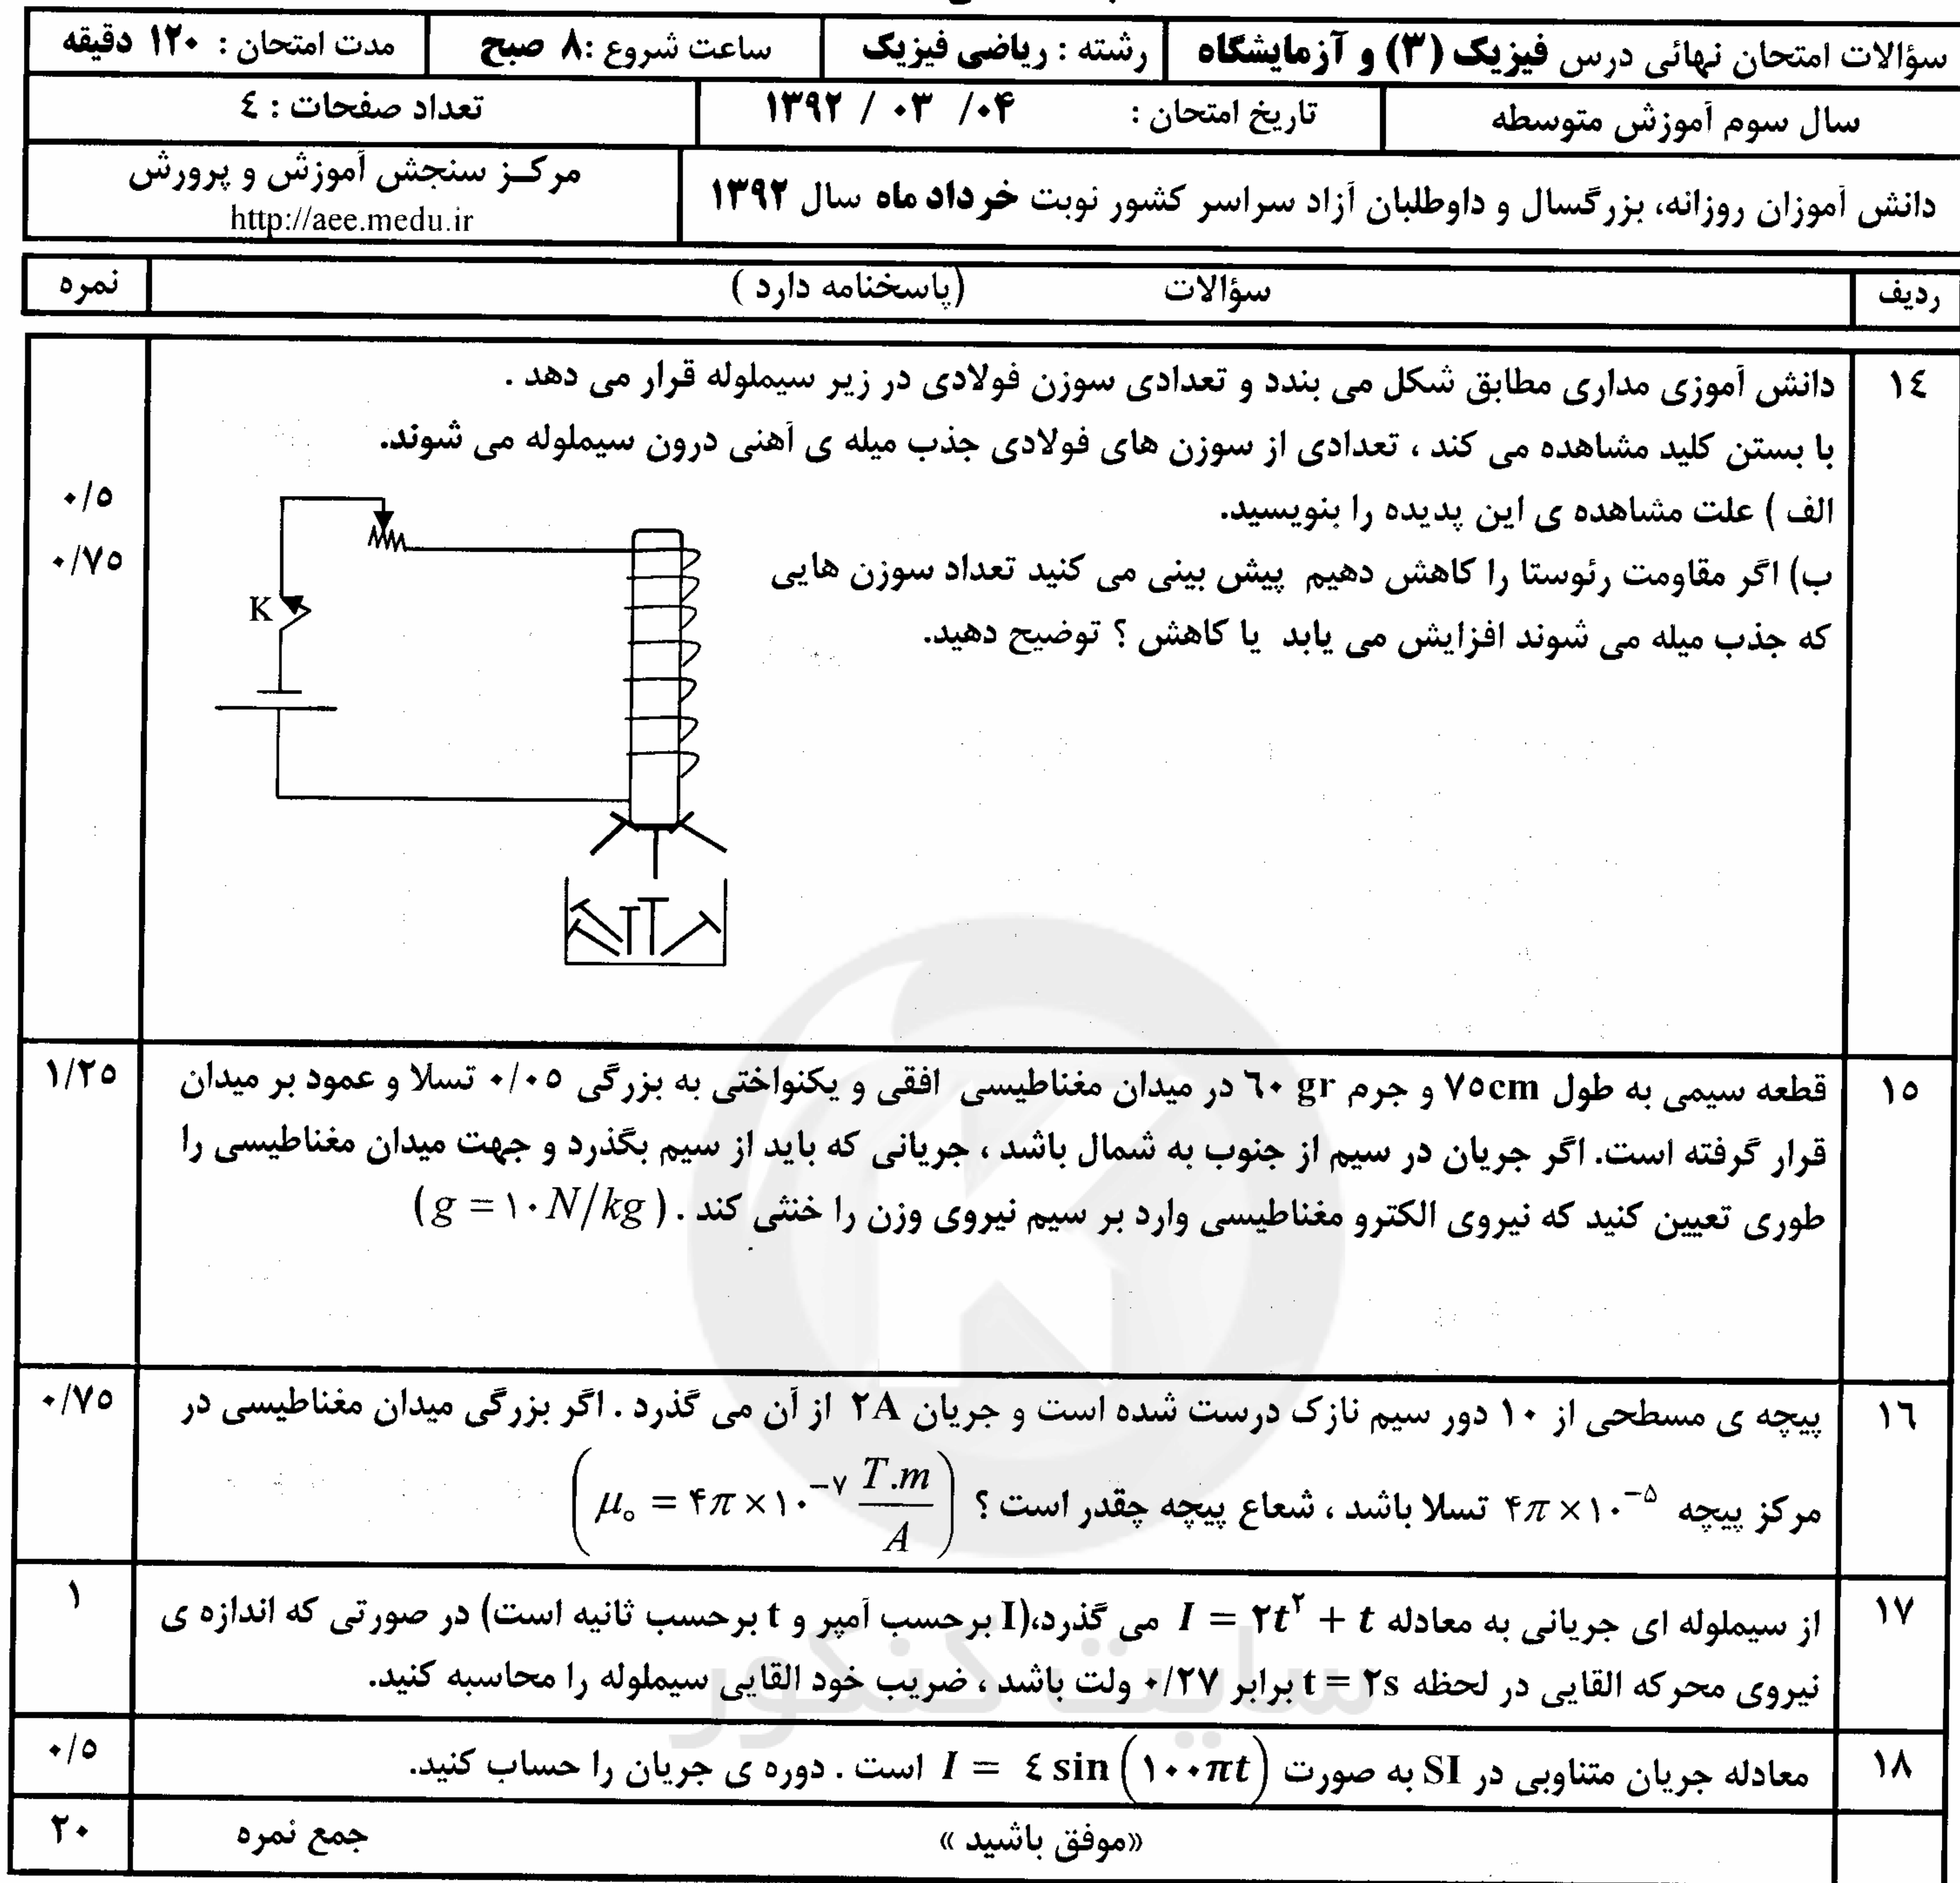 سؤالات امتحان نهائی درس فیزیک (۳) و آزمایشگاه رشته : ریاضی فیزیک ساعت شروع :۸ صبح مدت امتحان : ۱۲۰ دقیقه
سال سوم آموزش متوسطه تاریخ امتحان : ۰۴/ ۰۳ / ۱۳۹۲ تعداد صفحات : ٤
دانش آموزان روزانه، بزرگسال و داوطلبان آزاد سراسر کشور نوبت خرداد ماه سال ۱۳۹۲ مرکـز سنجش آموزش و پرورش
http://aee.medu.ir
ردیف سؤالات (پاسخنامه دارد ) نمره
۱٤ دانش آموزی مداری مطابق شکل می بندد و تعدادی سوزن فولادی در زیر سیملوله قرار می دهد .
با بستن کلید مشاهده می کند ، تعدادی از سوزن های فولادی جذب میله ی آهنی درون سیملوله می شوند.
الف ) علت مشاهده ی این پدیده را بنویسید. ۰/٥
ب) اگر مقاومت رئوستا را کاهش دهیم پیش بینی می کنید تعداد سوزن هایی ۰/۷٥
که جذب میله می شوند افزایش می یابد یا کاهش ؟ توضیح دهید.
K
۱٥ قطعه سیمی به طول ۷٥cm و جرم ٦۰ gr در میدان مغناطیسی افقی و یکنواختی به بزرگی ۰/۰٥ تسلا و عمود بر میدان ۱/۲٥
قرار گرفته است. اگر جریان در سیم از جنوب به شمال باشد ، جریانی که باید از سیم بگذرد و جهت میدان مغناطیسی را
طوری تعیین کنید که نیروی الکترو مغناطیسی وارد بر سیم نیروی وزن را خنثی کند . (g = ۱۰ N/kg)
۱٦ پیچه ی مسطحی از ۱۰ دور سیم نازک درست شده است و جریان ۲A از آن می گذرد . اگر بزرگی میدان مغناطیسی در ۰/۷٥
مرکز پیچه ۴π×۱۰⁻⁵ تسلا باشد ، شعاع پیچه چقدر است ؟ (μ₀ = ۴π×۱۰⁻⁷ T.m/A)
۱۷ از سیملوله ای جریانی به معادله I = ۲t² + t می گذرد،(I برحسب آمپر و t برحسب ثانیه است) در صورتی که اندازه ی ۱
نیروی محرکه القایی در لحظه t = ۲s برابر ۰/۲۷ ولت باشد ، ضریب خود القایی سیملوله را محاسبه کنید.
۱۸ معادله جریان متناوبی در SI به صورت I = ٤ sin (۱۰۰πt) است . دوره ی جریان را حساب کنید. ۰/٥
«موفق باشید » جمع نمره ۲۰
سایت کنکور